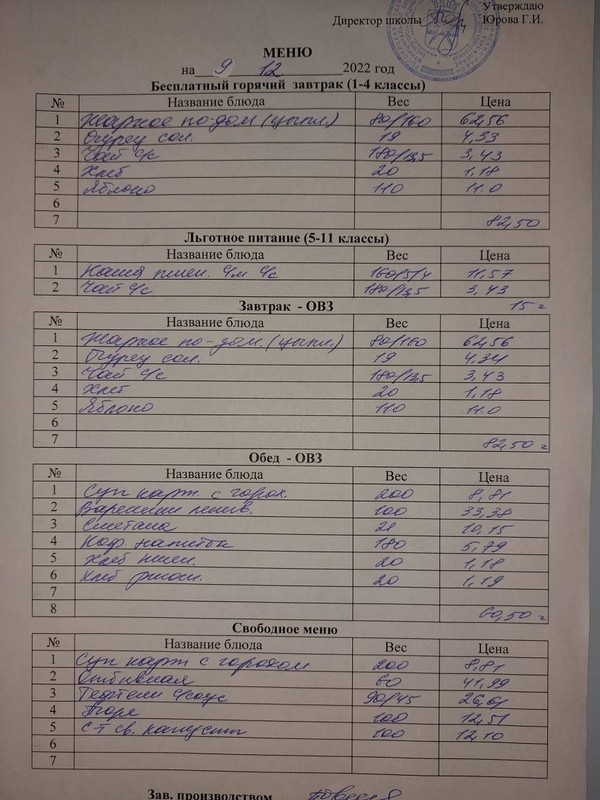 Утверждаю
Директор школы Юрова Г.И.
МЕНЮ
на 9 12 2022 год
Бесплатный горячий завтрак (1-4 классы)
№ Название блюда Вес Цена
1 Жаркое по-дом (цыпл.) 80/160 62,56
2 Огурец сол. 19 4,33
3 Чай с/с 180/13,5 3,43
4 Хлеб 20 1,18
5 Яблоко 110 11.0
6
7 82,50
Льготное питание (5-11 классы)
№ Название блюда Вес Цена
1 Каша пшен. с/м с/с 160/5/4 11,57
2 Чай с/с 180/13,5 3,43
15 =
Завтрак - ОВЗ
№ Название блюда Вес Цена
1 Жаркое по-дом. (цыпл.) 80/160 62,56
2 Огурец сол. 19 4,34
3 Чай с/с 180/13,5 3,43
4 Хлеб 20 1,18
5 Яблоко 110 11.0
6
7 82,50 =
Обед - ОВЗ
№ Название блюда Вес Цена
1 Суп карт. с горох. 200 8,81
2 Вареники ленив. 100 33,38
3 Сметана 21 10,15
4 Коф напиток 180 5,79
5 Хлеб пшен. 20 1,18
6 Хлеб ржан. 20 1,19
7
8 60,50 =
Свободное меню
№ Название блюда Вес Цена
1 Суп карт с горохом 200 8,81
2 Отбивная 60 41,99
3 Тефтели с/соус 90/45 26,61
4 Пюре 100 12,51
5 С-т св. капусты 100 12,10
6
7
Зав. производством